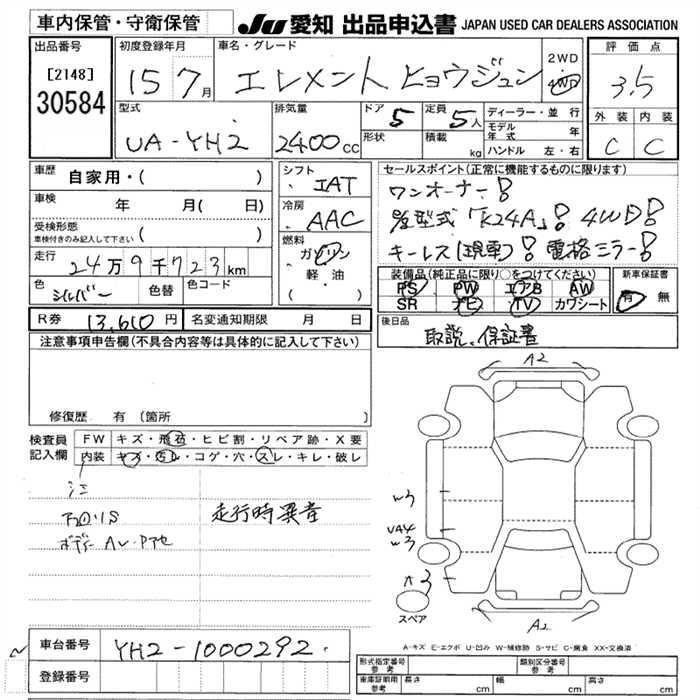 車内保管・守衛保管 JU 愛知 出品申込書 JAPAN USED CAR DEALERS ASSOCIATION
出品番号 初度登録年月 車名・グレード 評価点
[2148] 15 7月 エレメント ヒョウジュン 2WD 4WD 3.5
30584
型式 排気量 ドア 5 定員 5人 ディーラー・並行 外装 内装
UA-YH2 2400cc 形状 積載 kg モデル年式 年 C C
ハンドル 左・右
車歴 自家用・( ) シフト IAT セールスポイント(正常に機能するものに限ります)
車検 年 月( 日) 冷房 AAC ワンオーナー!
受検形態 ( ) 型式「K24A」! 4WD!
車検付きのみ記入して下さい 燃料 ガソリン キーレス(現車)! 電格ミラー!
走行 24万9千723km 軽油
色 シルバー 色替 色コード ( ) 装備品(純正品に限り○をつけてください) 新車保証書
PS PW エアB AW 有 無
SR ナビ TV カワシート
R券 13,610円 名変通知期限 月 日 後日品
取説、保証書
注意事項申告欄(不具合内容等は具体的に記入して下さい)
修復歴 有(箇所
検査員 FW キズ・飛石・ヒビ割・リペア跡・X要
記入欄 内装 キズ・汚レ・コゲ・穴・スレ・キレ・破レ
走行時異音
A2
W3
W3
3
スペア
A2
車台番号 YH2-1000292
A-キズ E-エクボ U-凹み W-補修跡 S-サビ C-腐食 XX-交換済
登録番号 形式指定番号 参考 類別区分番号 参考
車庫証明用 参考 長さ cm 幅 cm 高さ cm